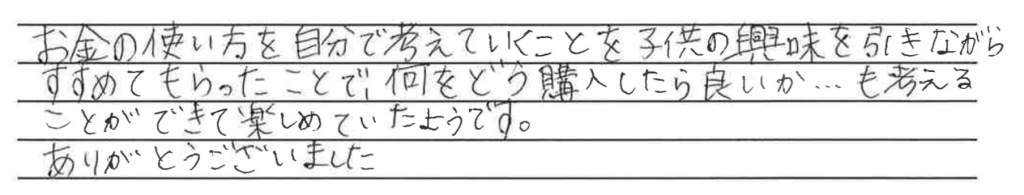 お金の使い方を自分で考えていくことを子供の興味を引きながら
すすめてもらったことで、何をどう購入したら良いか…も考える
ことができて楽しめていたようです。
ありがとうございました